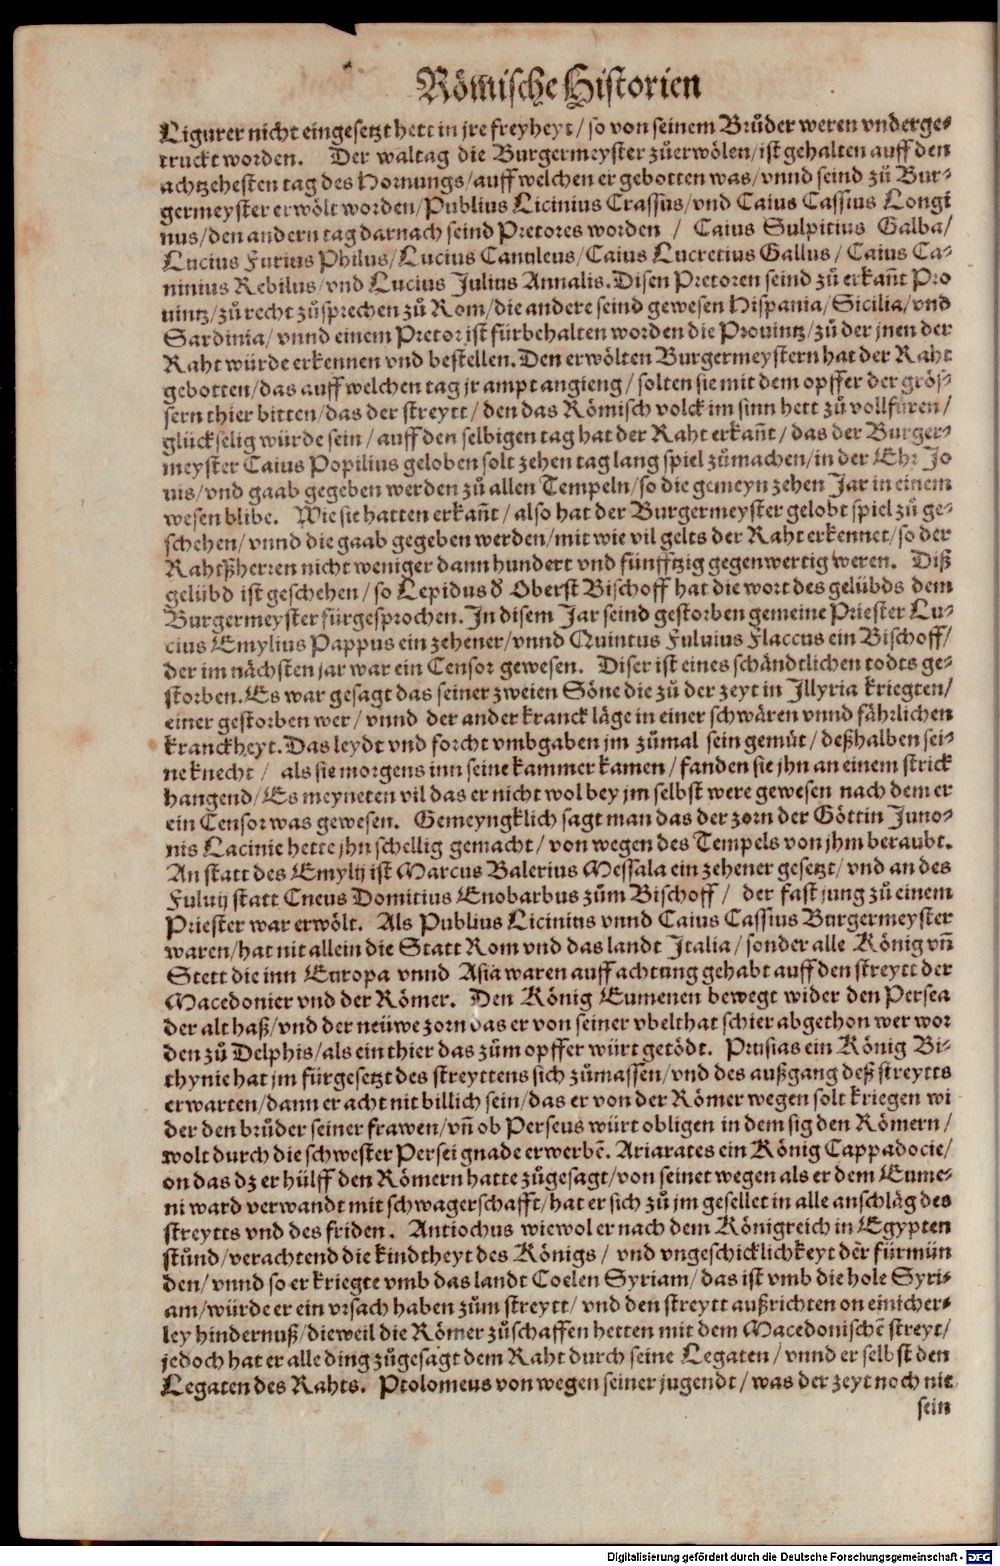 Römische Historien
Ligurer nicht eingesetzt hett in jre freyheyt / so von seinem Brůder weren vnderge⸗
truckt worden. Der waltag die Burgermeyster zůerwölen / ist gehalten auff den
achtzehesten tag des Hornungs / auff welchen er gebotten was / vnnd seind zů Bur⸗
germeyster erwölt worden / Publius Licinius Crassus / vnd Caius Cassius Longi
nus / den andern tag darnach seind Pretores worden / Caius Sulpitius Galba /
Lucius Furius Philus / Lucius Canuleus / Caius Lucretius Gallus / Caius Ca⸗
ninius Rebilus / vnd Lucius Julius Annalis. Disen Pretoren seind zů erkañt Pro
uintz / zů recht zůsprechen zů Rom / die andere seind gewesen Hispania / Sicilia / vnd
Sardinia / vnnd einem Pretor ist fürbehalten worden die Prouintz / zů der jnen der
Raht würde erkennen vnd bestellen. Den erwölten Burgermeystern hat der Raht
gebotten / das auff welchen tag jr ampt angieng / solten sie mit dem opffer der grös⸗
sern thier bitten / das der streytt / den das Römisch volck im sinn hett zů vollfüren /
glückselig würde sein / auff den selbigen tag hat der Raht erkañt / das der Burger⸗
meyster Caius Popilius geloben solt zehen tag lang spiel zůmachen / in der Ehr Jo
uis / vnd gaab gegeben werden zů allen Tempeln / so die gemeyn zehen Jar in einem
wesen blibe. Wie sie hatten erkañt / also hat der Burgermeyster gelobt spiel zů ge⸗
schehen / vnnd die gaab gegeben werden / mit wie vil gelts der Raht erkennet / so der
Rahtßherren nicht weniger dann hundert vnd fünfftzig gegenwertig weren. Diß
gelübd ist geschehen / so Lepidus d̕ Oberst Bischoff hat die wort des gelübds dem
Burgermeyster fürgesprochen. In disem Jar seind gestorben gemeine Priester Lu⸗
cius Emylius Pappus ein zehener / vnnd Quintus Fuluius Flaccus ein Bischoff /
der im nächsten jar war ein Censor gewesen. Diser ist eines schändtlichen todts ge⸗
storben. Es war gesagt das seiner zweien Söne die zů der zeyt in Jllyria kriegten /
einer gestorben wer / vnnd der ander kranck läge in einer schwären vnnd fährlichen
kranckheyt. Das leydt vnd forcht vmbgaben jm zůmal sein gemüt / deßhalben sei⸗
ne knecht / als sie morgens inn seine kammer kamen / fanden sie jhn an einem strick
hangend / Es meyneten vil das er nicht wol bey jm selbst were gewesen nach dem er
ein Censor was gewesen. Gemeyngklich sagt man das der zorn der Göttin Juno⸗
nis Lacinie hette jhn schellig gemacht / von wegen des Tempels von jhm beraubt.
An statt des Emylij ist Marcus Balerius Messala ein zehener gesetzt / vnd an des
Fuluij statt Cneus Domitius Enobarbus zům Bischoff / der fast jung zů einem
Priester war erwölt. Als Publius Licinius vnnd Caius Cassius Burgermeyster
waren / hat nit allein die Statt Rom vnd das landt Italia / sonder alle König vñ
Stett die inn Europa vnnd Asia waren auffachtung gehabt auff den streytt der
Macedonier vnd der Römer. Den König Eumenen bewegt wider den Persea
der alt haß / vnd der neüwe zorn das er von seiner vbelthat schier abgethon wer wor
den zů Delphis / als ein thier das zům opffer würt getödt. Prusias ein König Bi⸗
thynie hat jm fürgesetzt des streyttens sich zůmassen / vnd des außgang deß streytts
erwarten / dann er acht nit billich sein / das er von der Römer wegen solt kriegen wi
der den brůder seiner frawen / vñ ob Perseus würt obligen in dem sig den Römern /
wolt durch die schwester Persei gnade erwerbẽ. Ariarates ein König Cappadocie /
on das dz er hülff den Römern hatte zůgesagt / von seinet wegen als er dem Eume⸗
ni ward verwandt mit schwagerschafft / hat er sich zů jm gesellet in alle anschläg des
streytts vnd des friden. Antiochus wiewol er nach dem Königreich in Egypten
stůnd / verachtend die kindtheyt des Königs / vnd vngeschicklichkeyt der fürmün
den / vnnd so er kriegte vmb das landt Coelen Syriam / das ist vmb die hole Syri⸗
am / würde er ein vrsach haben zům streytt / vnd den streytt außrichten on einicher⸗
ley hindernuß / dieweil die Römer zůschaffen hetten mit dem Macedonischẽ streyt /
jedoch hat er alle ding zůgesagt dem Raht durch seine Legaten / vnnd er selbst den
Legaten des Rahts. Ptolomeus von wegen seiner jugendt / was der zeyt noch nit
sein
Digitalisierung gefördert durch die Deutsche Forschungsgemeinschaft - DFG